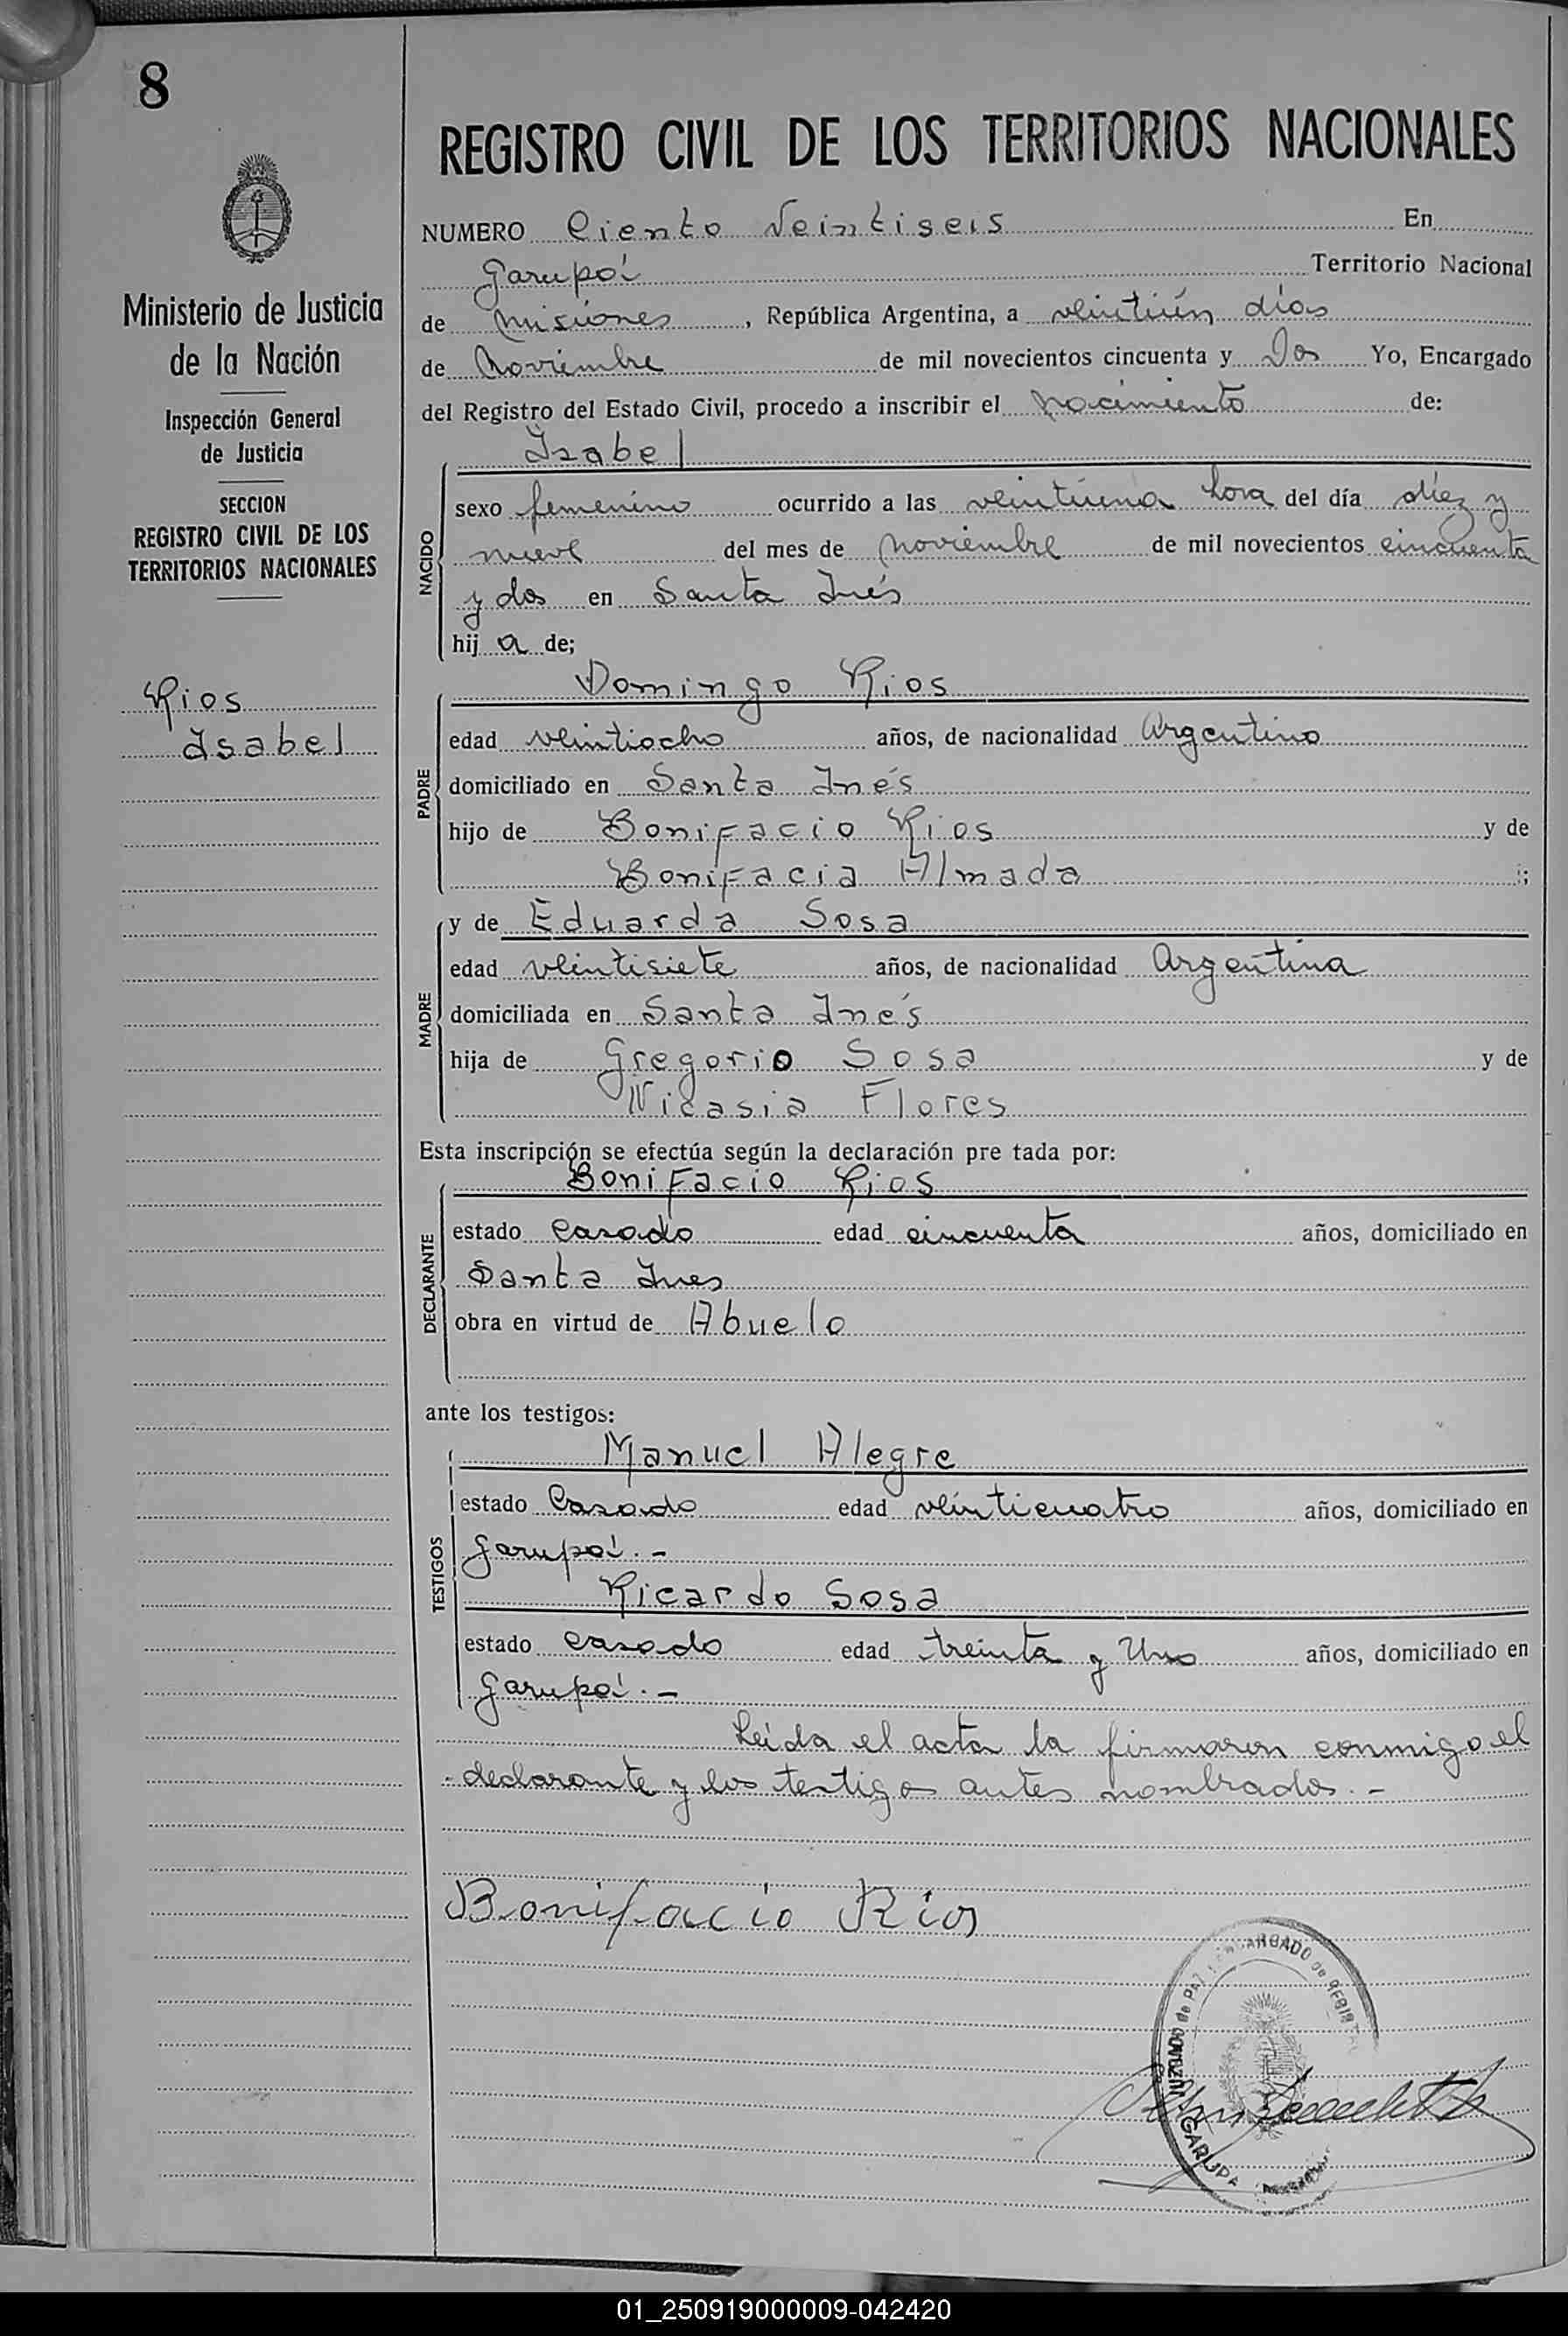 8
REGISTRO CIVIL DE LOS TERRITORIOS NACIONALES
Ministerio de Justicia
de la Nación
Inspección General
de Justicia
SECCION
REGISTRO CIVIL DE LOS
TERRITORIOS NACIONALES
Rios
Isabel
NUMERO Ciento Veintiseis En
Garupá Territorio Nacional
de Misiones, República Argentina, a veintiún días
de Noviembre de mil novecientos cincuenta y Dos Yo, Encargado
del Registro del Estado Civil, procedo a inscribir el nacimiento de:
NACIDO
Isabel
sexo femenino ocurrido a las veintiuna hora del día diez y
nueve del mes de noviembre de mil novecientos cincuenta
y dos en Santa Inés
hij a de;
PADRE
Domingo Rios
edad veintiocho años, de nacionalidad Argentino
domiciliado en Santa Inés
hijo de Bonifacio Rios y de
Bonifacia Almada ;
MADRE
y de Eduarda Sosa
edad veintisiete años, de nacionalidad Argentina
domiciliada en Santa Inés
hija de Gregorio Sosa y de
Nicasia Flores
Esta inscripción se efectúa según la declaración pre tada por:
DECLARANTE
Bonifacio Rios
estado Casado edad cincuenta años, domiciliado en
Santa Ines
obra en virtud de Abuelo
ante los testigos:
TESTIGOS
Manuel Alegre
estado Casado edad veinticuatro años, domiciliado en
Garupá.-
Ricardo Sosa
estado casado edad treinta y Uno años, domiciliado en
Garupá.-
Leída el acta la firmaron conmigo el
declarante y los testigos antes nombrados.-
Bonifacio Rios
JUZGADO de PAZ ENCARGADO de REGIST
GARUPA
01_250919000009-042420